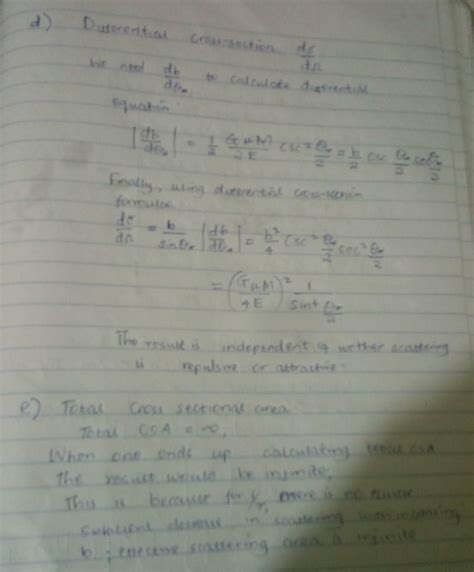 d) Differential cross-section dσ/dΩ
We need db/dθ∞ to calculate differential
equation:
|db/dθ∞| = 1/2 GμM/2E csc² θ∞/2 = b/2 csc θ∞/2 sec θ∞/2
Finally, using differential cross-section
formulae
dσ/dΩ = b/sinθ∞ |db/dθ∞| = b²/4 csc² θ∞/2 sec² θ∞/2
= (GμM/4E)² 1/sin⁴ θ∞/2
The result is independent of wether scattering
is repulsive or attractive.
e) Total cross sectional area
Total CSA = ∞,
When one ends up calculating total CSA
The result would be infinite,
This is because for 1/r, there is no
sufficient decrease in scattering with increasing
b; effective scattering area is infinite